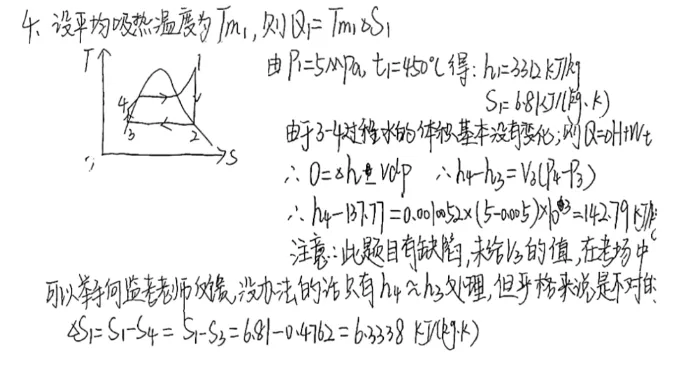 4、设平均吸热温度为Tm₁, 则Q₁=Tm₁ΔS₁
由P₁=5MPa, t₁=450℃得: h₁=3312kJ/kg
S₁=6.81kJ/(kg·K)
T
1
4
3
2
S
由于3-4过程水的体积基本没有变化, 则Q=ΔH+Wt
∴ 0=Δh-Vdp ∴h₄-h₃=V₃(P₄-P₃)
∴ h₄-137.77=0.0010052×(5-0.005)×10³=142.79 kJ/kg
注意: 此题目有缺陷, 未给V₃的值, 在考场中
可以举手向监考老师反馈, 没办法的话只有h₄≈h₃处理, 但严格来说是不对的
ΔS₁=S₁-S₄=S₁-S₃=6.81-0.4762=6.3338 kJ/(kg·K)